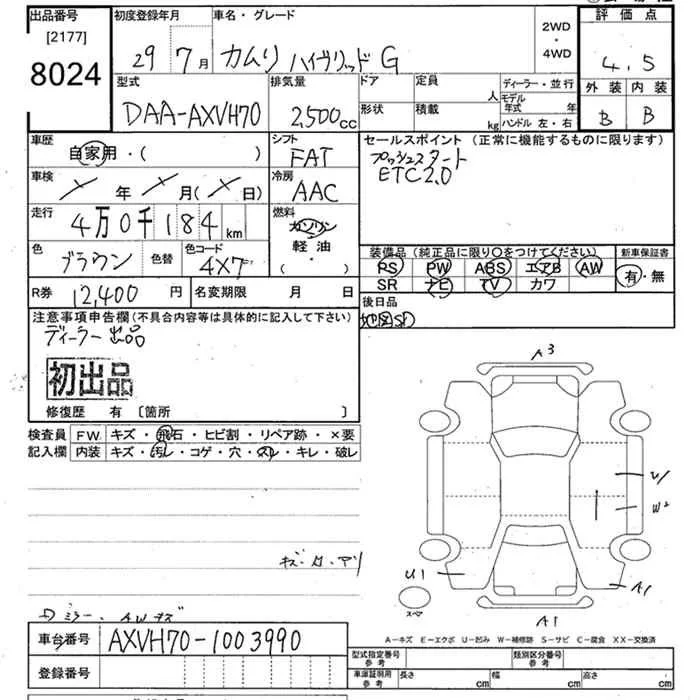 出品番号
[2177]
8024
初度登録年月
29 7月
車名・グレード
カムリ ハイヴリッド G
2WD
・
4WD
評価点
4.5
外装 内装
B B
型式
DAA-AXVH70
排気量
2,500cc
ドア
定員
人
形状
積載
kg
ディーラー・並行
モデル年式 年
ハンドル 左・右
車歴
自家用・( )
シフト
FAT
車検
年 月( 日)
冷房
AAC
走行
4万0千184km
燃料
ガソリン
軽油・
( )
色
ブラウン
色替
色コード
4X7
R券
12,400円
名変期限 月 日
セールスポイント(正常に機能するものに限ります)
プッシュスタート
ETC2.0
装備品(純正品に限り○をつけてください)
PS PW ABS エアB AW
SR ナビ TV カワ
新車保証書
有・無
後日品
地図SD
注意事項申告欄(不具合内容等は具体的に記入して下さい)
ディーラー出品
初出品
修復歴 有 〔箇所 〕
検査員 FW. キズ・飛石・ヒビ割・リペア跡・×要
記入欄 内装 キズ・汚レ・コゲ・穴・スレ・キレ・破レ
A3
W2
U1
A1
スペア
A1
A-キズ E-エクボ U-凹み W-補修跡 S-サビ C-腐食 XX-交換済
車台番号
AXVH70-1003990
登録番号
型式指定番号 参考
類別区分番号 参考
車庫証明用 参考
長さ cm 幅 cm 高さ cm